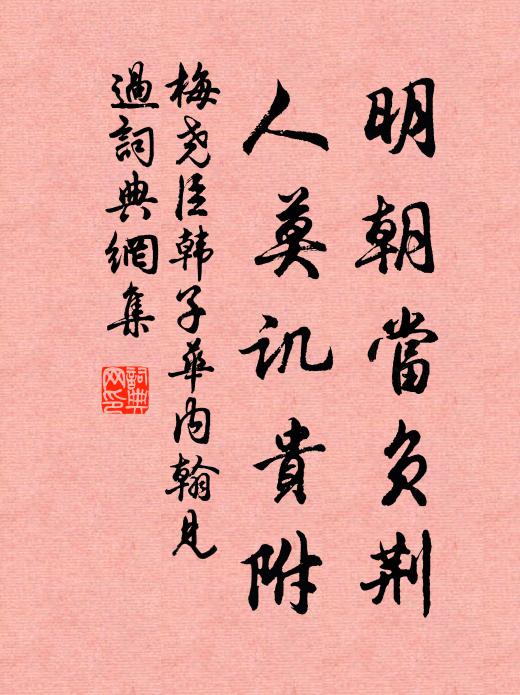 明朝當負荆
人莫讥貴附
梅尧臣韩子華内翰見
過詞典網集
詞典
网印